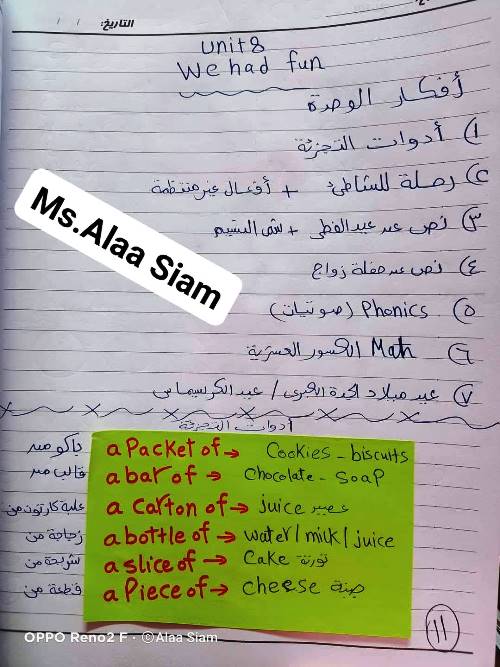 التاريخ: / /
Unit 8
We had fun
أفكار الوحدة
١ أدوات التجزئة
٢ رحلة للشاطئ + أفعال غير منتظمة
٣ نص عن عيد الفطر + شم النسيم
٤ نص عن حفلة زواج
٥ Phonics (صوتيات)
٦ Math الكسور العشرية
٧ عيد ميلاد الجدة الكبرى / عيد الكريسماس
Ms.Alaa Siam
أدوات التجزئة
a Packet of → Cookies - biscuits باكو من
a bar of → Chocolate - Soap قالب من
a Carton of → juice عصير علبة كارتون من
a bottle of → water / milk / juice زجاجة من
a slice of → Cake تورتة شريحة من
a Piece of → cheese جبنة قطعة من
11
OPPO Reno2 F · ©Alaa Siam